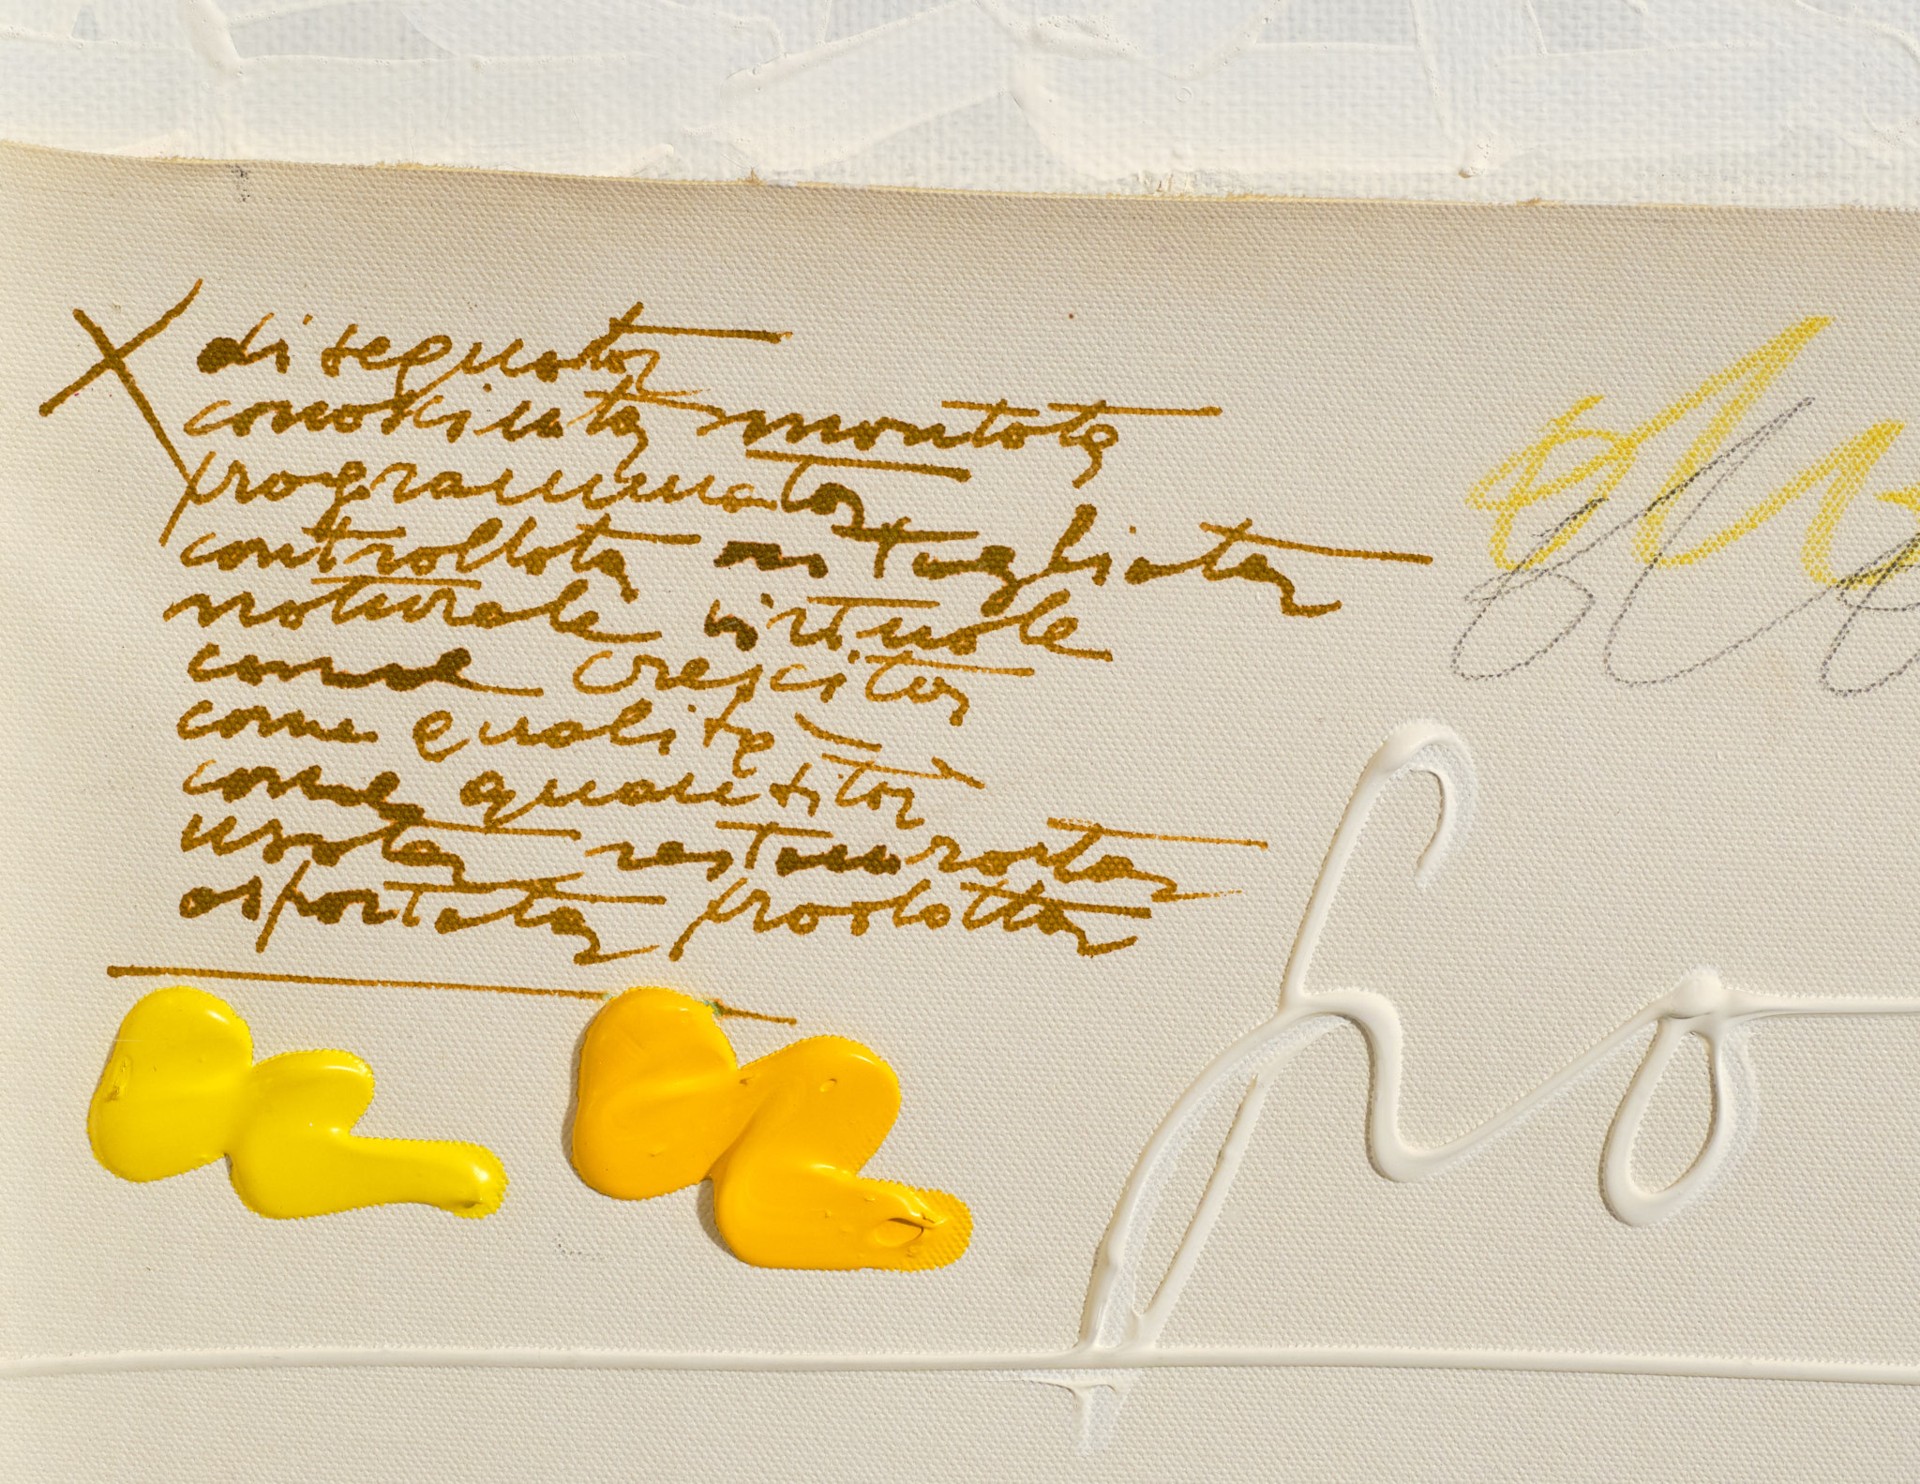 disegnata
conosciuta montata
programmata
controllata tagliata
naturale virtuale
come crescita
come qualità
come quantità
usata restaurata
asportata prodotta